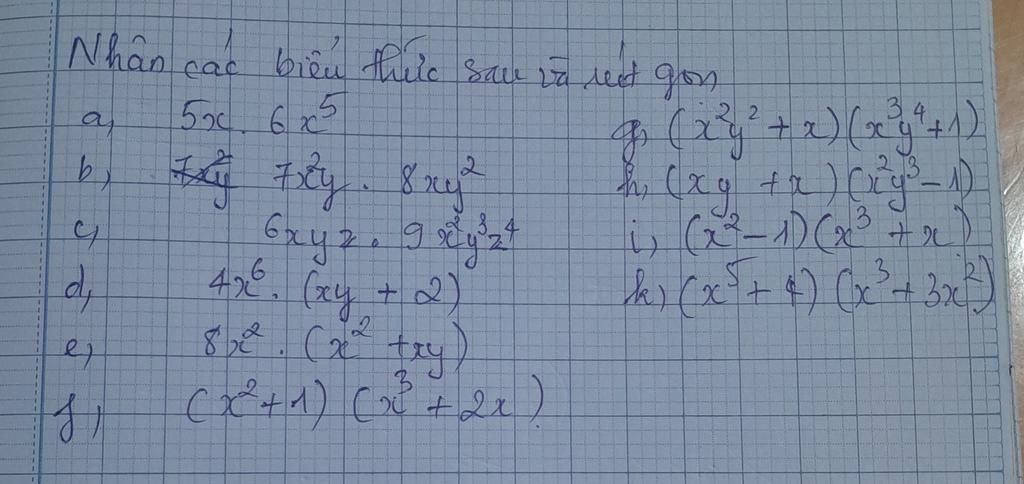 Nhân các biểu thức sau và rút gọn
a, 5x. 6x⁵
b, 7x²y . 8xy²
c, 6xyz . 9x²y³z⁴
d, 4x⁶. (xy + 2)
e, 8x² . (x² + xy)
f, (x²+1) (x³ + 2x)
g, (x²y² + x)(x³y⁴+1)
h, (xy + x)(x²y³-1)
i, (x²-1)(x³ + x)
k, (x⁵+4) (x³+3x²)